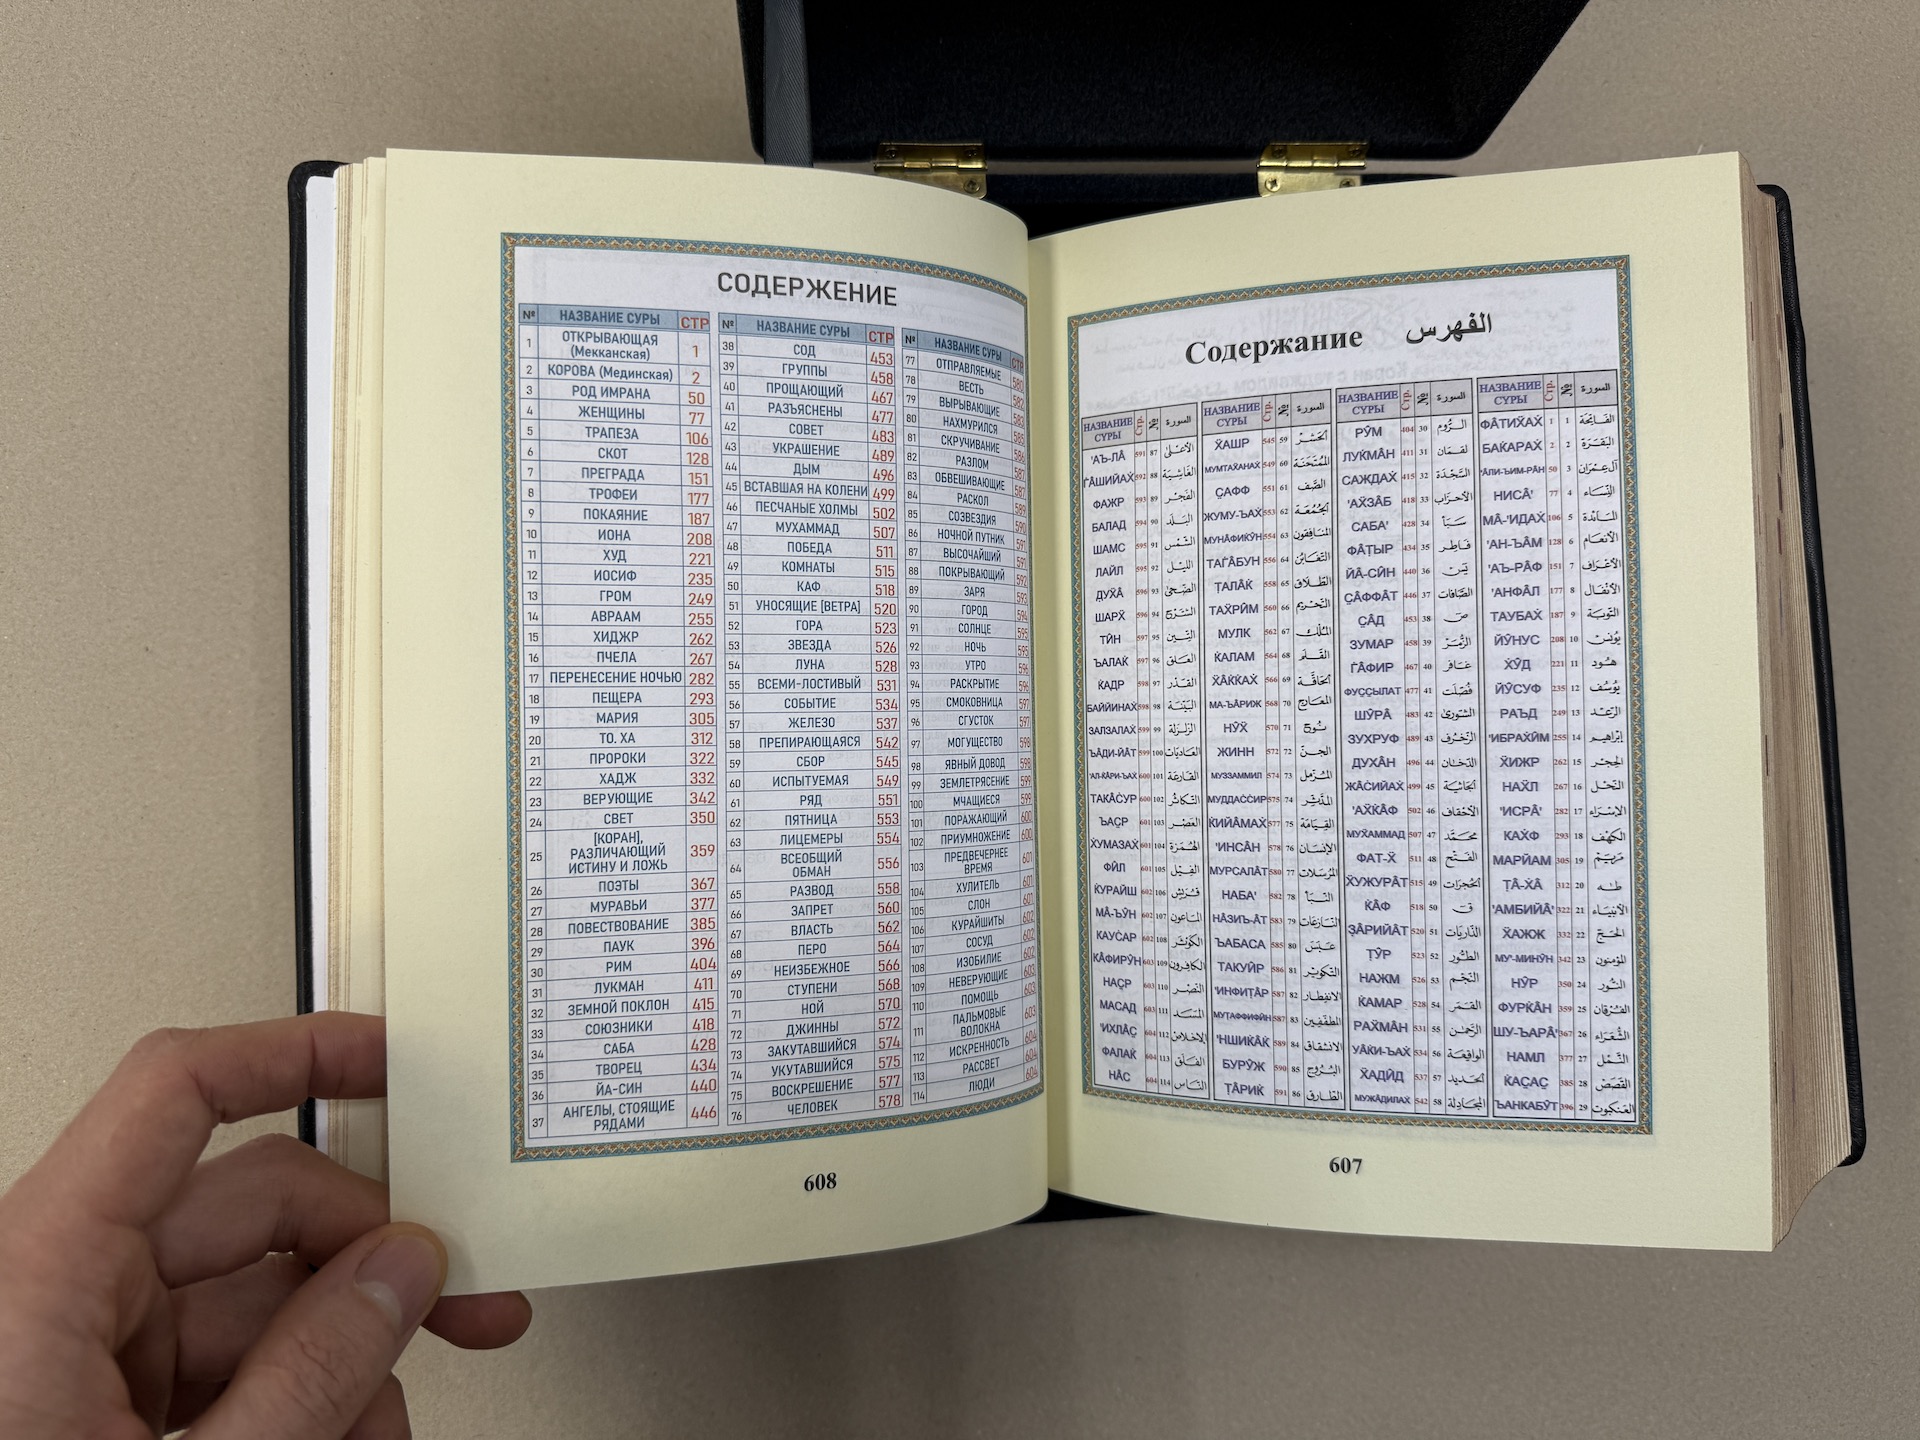 СОДЕРЖЕНИЕ
№ НАЗВАНИЕ СУРЫ СТР
1 ОТКРЫВАЮЩАЯ (Мекканская) 1
2 КОРОВА (Мединская) 2
3 РОД ИМРАНА 50
4 ЖЕНЩИНЫ 77
5 ТРАПЕЗА 106
6 СКОТ 128
7 ПРЕГРАДА 151
8 ТРОФЕИ 177
9 ПОКАЯНИЕ 187
10 ИОНА 208
11 ХУД 221
12 ИОСИФ 235
13 ГРОМ 249
14 АВРААМ 255
15 ХИДЖР 262
16 ПЧЕЛА 267
17 ПЕРЕНЕСЕНИЕ НОЧЬЮ 282
18 ПЕЩЕРА 293
19 МАРИЯ 305
20 ТО. ХА 312
21 ПРОРОКИ 322
22 ХАДЖ 332
23 ВЕРУЮЩИЕ 342
24 СВЕТ 350
25 [КОРАН], РАЗЛИЧАЮЩИЙ ИСТИНУ И ЛОЖЬ 359
26 ПОЭТЫ 367
27 МУРАВЬИ 377
28 ПОВЕСТВОВАНИЕ 385
29 ПАУК 396
30 РИМ 404
31 ЛУКМАН 411
32 ЗЕМНОЙ ПОКЛОН 415
33 СОЮЗНИКИ 418
34 САБА 428
35 ТВОРЕЦ 434
36 ЙА-СИН 440
37 АНГЕЛЫ, СТОЯЩИЕ РЯДАМИ 446
№ НАЗВАНИЕ СУРЫ СТР
38 СОД 453
39 ГРУППЫ 458
40 ПРОЩАЮЩИЙ 467
41 РАЗЪЯСНЕНЫ 477
42 СОВЕТ 483
43 УКРАШЕНИЕ 489
44 ДЫМ 496
45 ВСТАВШАЯ НА КОЛЕНИ 499
46 ПЕСЧАНЫЕ ХОЛМЫ 502
47 МУХАММАД 507
48 ПОБЕДА 511
49 КОМНАТЫ 515
50 КАФ 518
51 УНОСЯЩИЕ [ВЕТРА] 520
52 ГОРА 523
53 ЗВЕЗДА 526
54 ЛУНА 528
55 ВСЕМИ-ЛОСТИВЫЙ 531
56 СОБЫТИЕ 534
57 ЖЕЛЕЗО 537
58 ПРЕПИРАЮЩАЯСЯ 542
59 СБОР 545
60 ИСПЫТУЕМАЯ 549
61 РЯД 551
62 ПЯТНИЦА 553
63 ЛИЦЕМЕРЫ 554
64 ВСЕОБЩИЙ ОБМАН 556
65 РАЗВОД 558
66 ЗАПРЕТ 560
67 ВЛАСТЬ 562
68 ПЕРО 564
69 НЕИЗБЕЖНОЕ 566
70 СТУПЕНИ 568
71 НОЙ 570
72 ДЖИННЫ 572
73 ЗАКУТАВШИЙСЯ 574
74 УКУТАВШИЙСЯ 575
75 ВОСКРЕШЕНИЕ 577
76 ЧЕЛОВЕК 578
№ НАЗВАНИЕ СУРЫ СТР
77 ОТПРАВЛЯЕМЫЕ 580
78 ВЕСТЬ 582
79 ВЫРЫВАЮЩИЕ 583
80 НАХМУРИЛСЯ 585
81 СКРУЧИВАНИЕ 586
82 РАЗЛОМ 587
83 ОБВЕШИВАЮЩИЕ 587
84 РАСКОЛ 589
85 СОЗВЕЗДИЯ 590
86 НОЧНОЙ ПУТНИК 591
87 ВЫСОЧАЙШИЙ 591
88 ПОКРЫВАЮЩИЙ 592
89 ЗАРЯ 593
90 ГОРОД 594
91 СОЛНЦЕ 595
92 НОЧЬ 595
93 УТРО 596
94 РАСКРЫТИЕ 596
95 СМОКОВНИЦА 597
96 СГУСТОК 597
97 МОГУЩЕСТВО 598
98 ЯВНЫЙ ДОВОД 598
99 ЗЕМЛЕТРЯСЕНИЕ 599
100 МЧАЩИЕСЯ 599
101 ПОРАЖАЮЩИЙ 600
102 ПРИУМНОЖЕНИЕ 600
103 ПРЕДВЕЧЕРНЕЕ ВРЕМЯ 601
104 ХУЛИТЕЛЬ 601
105 СЛОН 601
106 КУРАЙШИТЫ 602
107 СОСУД 602
108 ИЗОБИЛИЕ 602
109 НЕВЕРУЮЩИЕ 603
110 ПОМОЩЬ 603
111 ПАЛЬМОВЫЕ ВОЛОКНА 603
112 ИСКРЕННОСТЬ 604
113 РАССВЕТ 604
114 ЛЮДИ 604
608
Содержание الفهرس
НАЗВАНИЕ СУРЫ Стр. № السورة
ФÂТИХ̈АХ̇ 1 1 الفَاتِحَة
БАК̇АРАХ̇ 2 2 البَقَرَة
'ÂЛИ-ЪИМ-РÂН 50 3 آل عِمْرَان
НИСÂ' 77 4 النِّسَاء
МÂ-'ИДАХ̇ 106 5 المَائدة
'АН-ЪÂМ 128 6 الأنعَام
'АЪ-РÂФ 151 7 الأعرَاف
'АНФÂЛ 177 8 الأنفَال
ТАУБАХ̇ 187 9 التوبَة
ЙŶНУС 208 10 يُونس
Х̇ŶД 221 11 هُود
ЙŶСУФ 235 12 يُوسُف
РАЪД 249 13 الرَّعد
'ИБРАХ̇ӢМ 255 14 إبراهِيم
Х̈ИЖР 262 15 الحِجر
НАХ̈Л 267 16 النَّحل
'ИСРÂ' 282 17 الإسرَاء
КАХ̇Ф 293 18 الكهْف
МАРЙАМ 305 19 مَريَم
Т̣Â-Х̇Â 312 20 طه
'АМБИЙÂ' 322 21 الأنبيَاء
Х̈АЖЖ 332 22 الحَج
МУ'-МИНŶН 342 23 المؤمنون
НŶР 350 24 النُّور
ФУРК̇ÂН 359 25 الفُرْقَان
ШУ-ЪАРÂ' 367 26 الشُّعَرَاء
НАМЛ 377 27 النَّمْل
К̇АС̣АС̣ 385 28 القَصَص
ЪАНКАБŶТ 396 29 العَنكبوت
НАЗВАНИЕ СУРЫ Стр. № السورة
РŶМ 404 30 الرُّوم
ЛУК̇МÂН 411 31 لقمَان
САЖДАХ̇ 415 32 السَّجْدَة
'АХ̈ЗÂБ 418 33 الأحزاب
САБА' 428 34 سَبَأ
ФÂТ̣ЫР 434 35 فَاطِر
ЙÂ-СӢН 440 36 يس
С̣ÂФФÂТ 446 37 الصَّافات
С̣ÂД 453 38 ص
ЗУМАР 458 39 الزُّمَر
ҐÂФИР 467 40 غَافر
ФУС̣С̣ЫЛАТ 477 41 فُصّلَت
ШŶРÂ 483 42 الشّورى
ЗУХРУФ 489 43 الزّخرُف
ДУХÂН 496 44 الدّخَان
ЖÂСИЙАХ̇ 499 45 الجَاثية
'АХ̈К̇ÂФ 502 46 الأحقَاف
МУХ̈АММАД 507 47 محَمَّد
ФАТ-Х̈ 511 48 الفَتْح
Х̈УЖУРÂТ 515 49 الحُجرَات
К̇ÂФ 518 50 ق
З̣ÂРИЙÂТ 520 51 الذَّاريَات
Т̣ŶР 523 52 الطُّور
НАЖМ 526 53 النَّجْم
К̇АМАР 528 54 القَمَر
РАХ̈МÂН 531 55 الرَّحمن
УÂК̇И-ЪАХ̇ 534 56 الواقِعَة
Х̈АДӢД 537 57 الحَديد
МУЖÂДИЛАХ̇ 542 58 المجَادلة
НАЗВАНИЕ СУРЫ Стр. № السورة
Х̈АШР 545 59 الحَشْر
МУМТАХ̈АНАХ̇ 549 60 المُمتَحَنَة
С̣АФФ 551 61 الصَّف
ЖУМУ-ЪАХ̇ 553 62 الجُمُعَة
МУНÂФИК̇ŶН 554 63 المنَافقون
ТАҐÂБУН 556 64 التّغَابُن
Т̣АЛÂК̇ 558 65 الطّلاق
ТАХ̈РӢМ 560 66 التّحريم
МУЛК 562 67 المُلك
К̇АЛАМ 564 68 القَلَم
Х̈ÂК̇К̇АХ̇ 566 69 الحَاقّة
МА-ЪÂРИЖ 568 70 المعَارج
НŶХ̈ 570 71 نُوح
ЖИНН 572 72 الجنّ
МУЗЗАММИЛ 574 73 المُزّمل
МУДДАССИР 575 74 المُدّثِّر
К̇ИЙÂМАХ̇ 577 75 القِيَامَة
'ИНСÂН 578 76 الإنسَان
МУРСАЛÂТ 580 77 المُرسَلات
НАБА' 582 78 النّبَأ
НÂЗИЪ-ÂТ 583 79 النّازعَات
ЪАБАСА 585 80 عَبَس
ТАКУӢР 586 81 التكوير
'ИНФИТ̣ÂР 587 82 الانفطار
МУТ̣АФФИФӢН 587 83 المطَفّفين
'НШИК̇ÂК̇ 589 84 الانشقاق
БУРŶЖ 590 85 البُروج
Т̣ÂРИК̇ 591 86 الطّارق
НАЗВАНИЕ СУРЫ Стр. № السورة
'АЪ-ЛÂ 591 87 الأعلى
ҐÂШИЙАХ̇ 592 88 الغَاشِيَة
ФАЖР 593 89 الفَجْر
БАЛАД 594 90 البَلَد
ШАМС 595 91 الشّمْس
ЛАЙЛ 595 92 الليل
Д̣УХ̈Â 596 93 الضّحَى
ШАРХ̈ 596 94 الشَّرْح
ТӢН 597 95 التّين
ЪАЛАК̇ 597 96 العَلق
К̇АДР 598 97 القَدْر
БАЙЙИНАХ̇ 598 98 البَيّنَة
ЗАЛЗАЛАХ̇ 599 99 الزلزلة
ЪÂДИ-ЙÂТ 599 100 العَاديَات
'АЛ-К̇ÂРИ-ЪАХ̇ 600 101 القَارعَة
ТАКÂСУР 600 102 التكاثر
ЪАС̣Р 601 103 العَصْر
Х̇УМАЗАХ̇ 601 104 الهُمزَة
ФӢЛ 601 105 الفِيل
К̇УРАЙШ 602 106 قُرَيش
МÂ-ЪŶН 602 107 الماعون
КАУСАР 602 108 الكوثر
КÂФИРŶН 603 109 الكافِرون
НАС̣Р 603 110 النّصْر
МАСАД 603 111 المَسَد
'ИХЛÂС̣ 604 112 الإخلاص
ФАЛАК̇ 604 113 الفَلَق
НÂС 604 114 النّاس
607